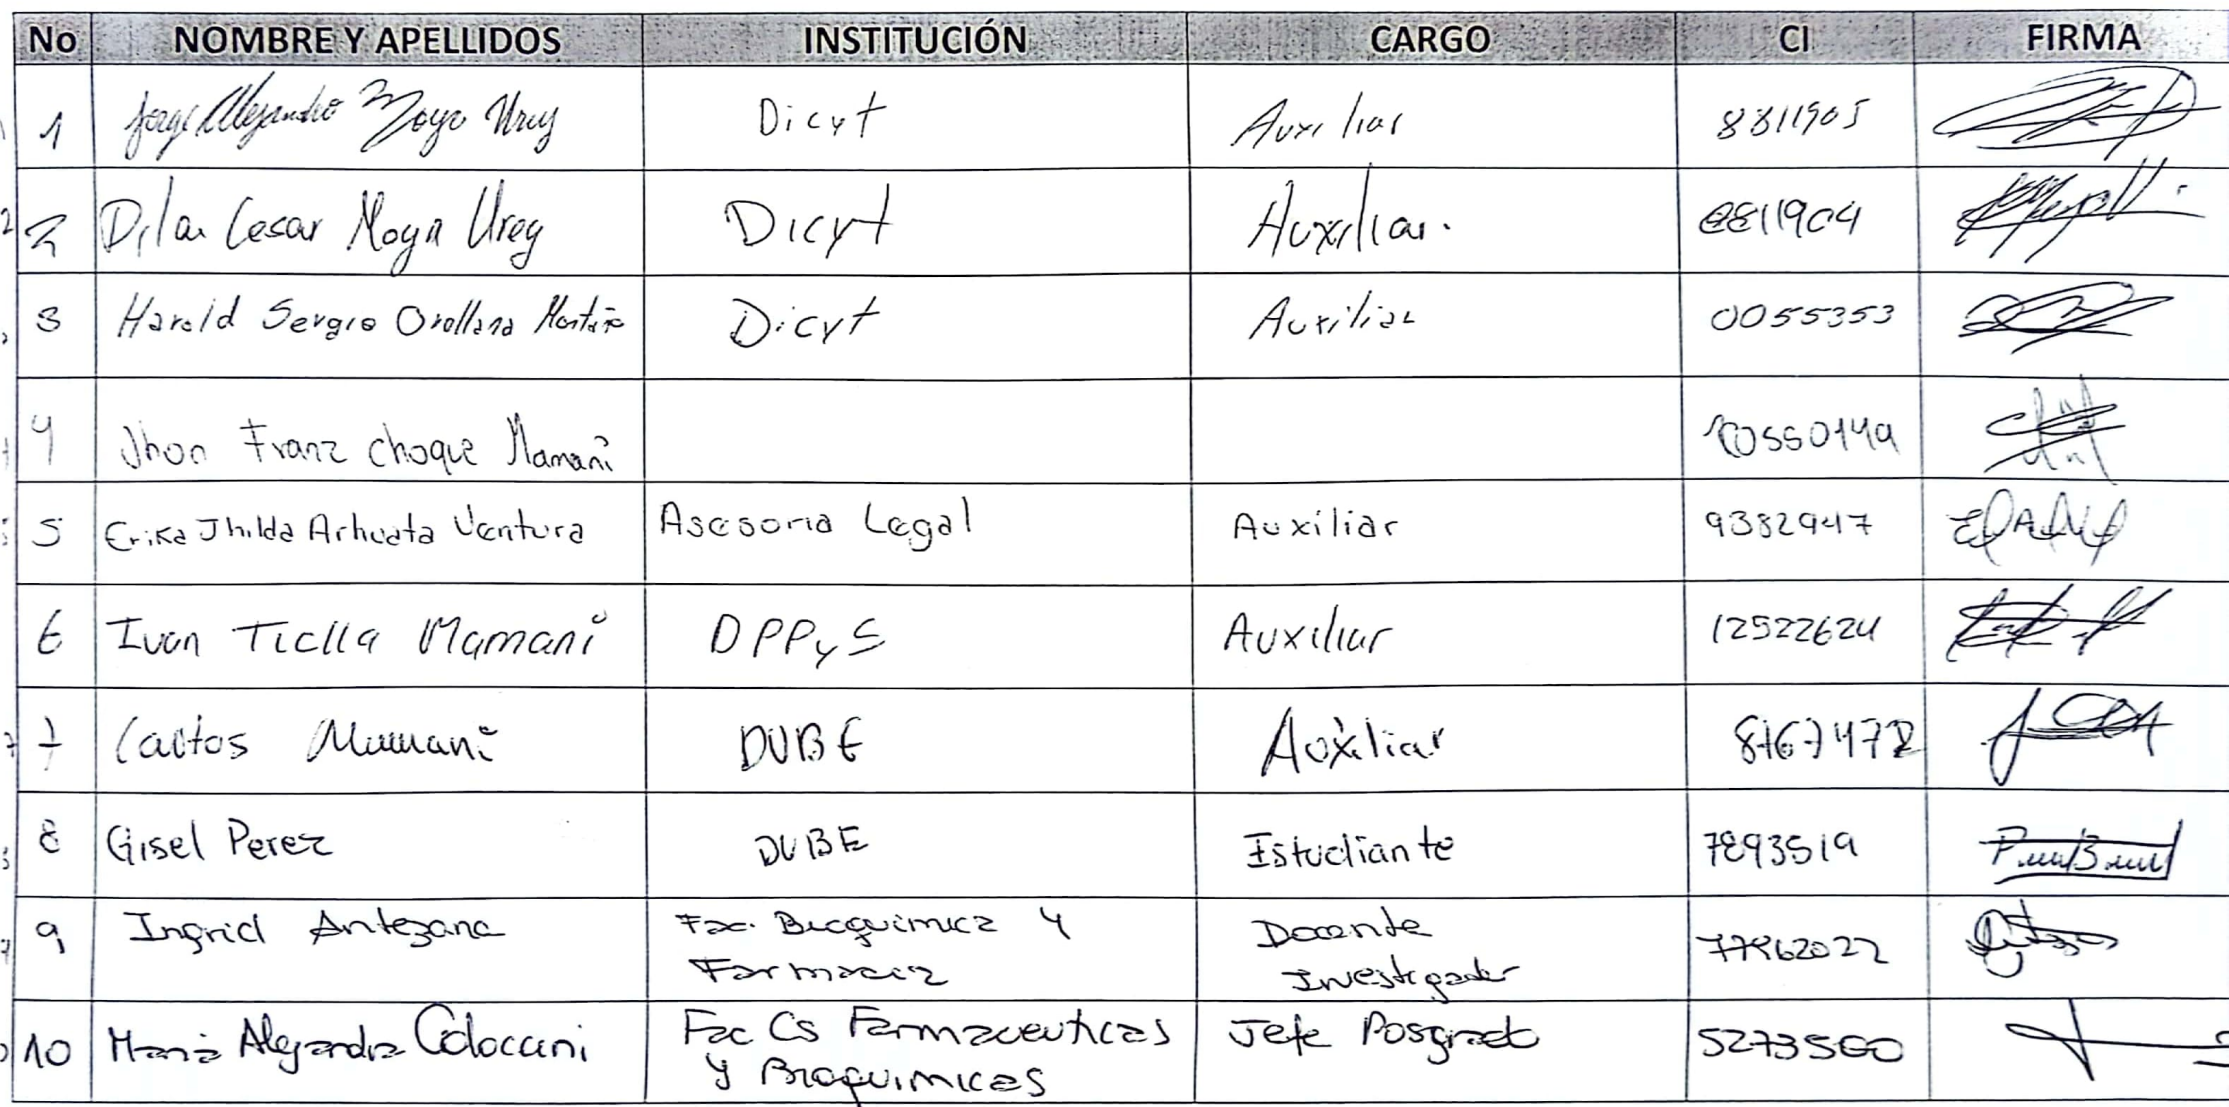 No NOMBRE Y APELLIDOS INSTITUCIÓN CARGO CI FIRMA
1 Jorge Alejandro Moya Urey Dicyt Auxiliar 8811905
2 Dilan Cesar Moya Urey Dicyt Auxiliar. 8811904
3 Harold Sergio Orellana Montaño Dicyt Auxiliar 0055353
4 Jhon Franz choque Mamani
5 Erika Jhilda Arhuata Ventura Asesoria Legal Auxiliar 9382947
6 Ivan Ticlla Mamani DPPyS Auxiliar 12522624
7 Carlos Mamani DUBE Auxiliar
8 Gisel Perez DUBE Estudiante 7893519
9 Ingrid Antezana Fac. Bioquimica y Docente
Farmacia Investigador
10 Maria Alejandra Fac Cs Farmaceuticas Jefe Posgrado 5273560
y Bioquimicas